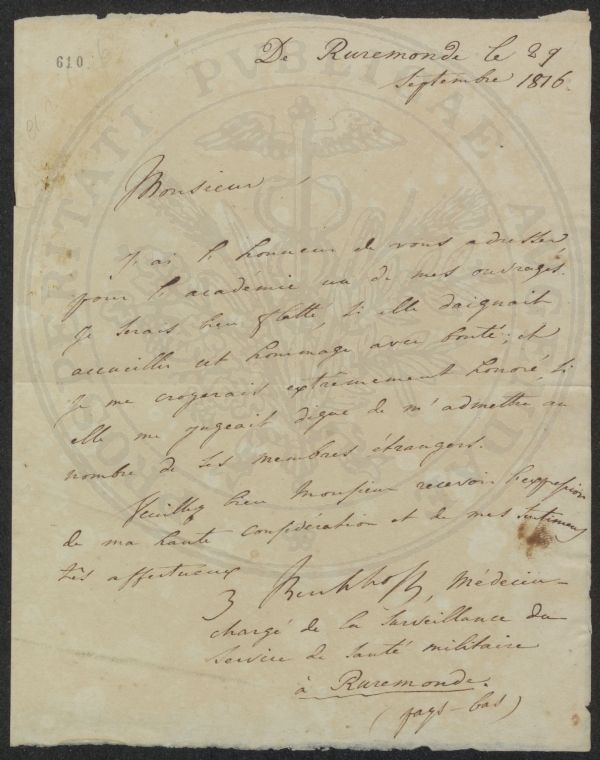 610
De Ruremonde le 29
Septembre 1816.
Monsieur
J'ai l'honneur de vous adresser,
pour l'académie un de mes ouvrages.
Je serais bien flatté, si elle daignait
accueillir cet hommage avec bonté; et
je me croyerais extrêmement honoré, si
elle me jugeait digne de m'admettre au
nombre de ses membres étrangers.
Veuillez bien Monsieur recevoir l'expression
de ma haute considération et de mes sentimens
très affectueux
Kerckhoffs, Médecin-
chargé de la surveillance du
service de santé militaire
à Ruremonde.
(pays-bas)